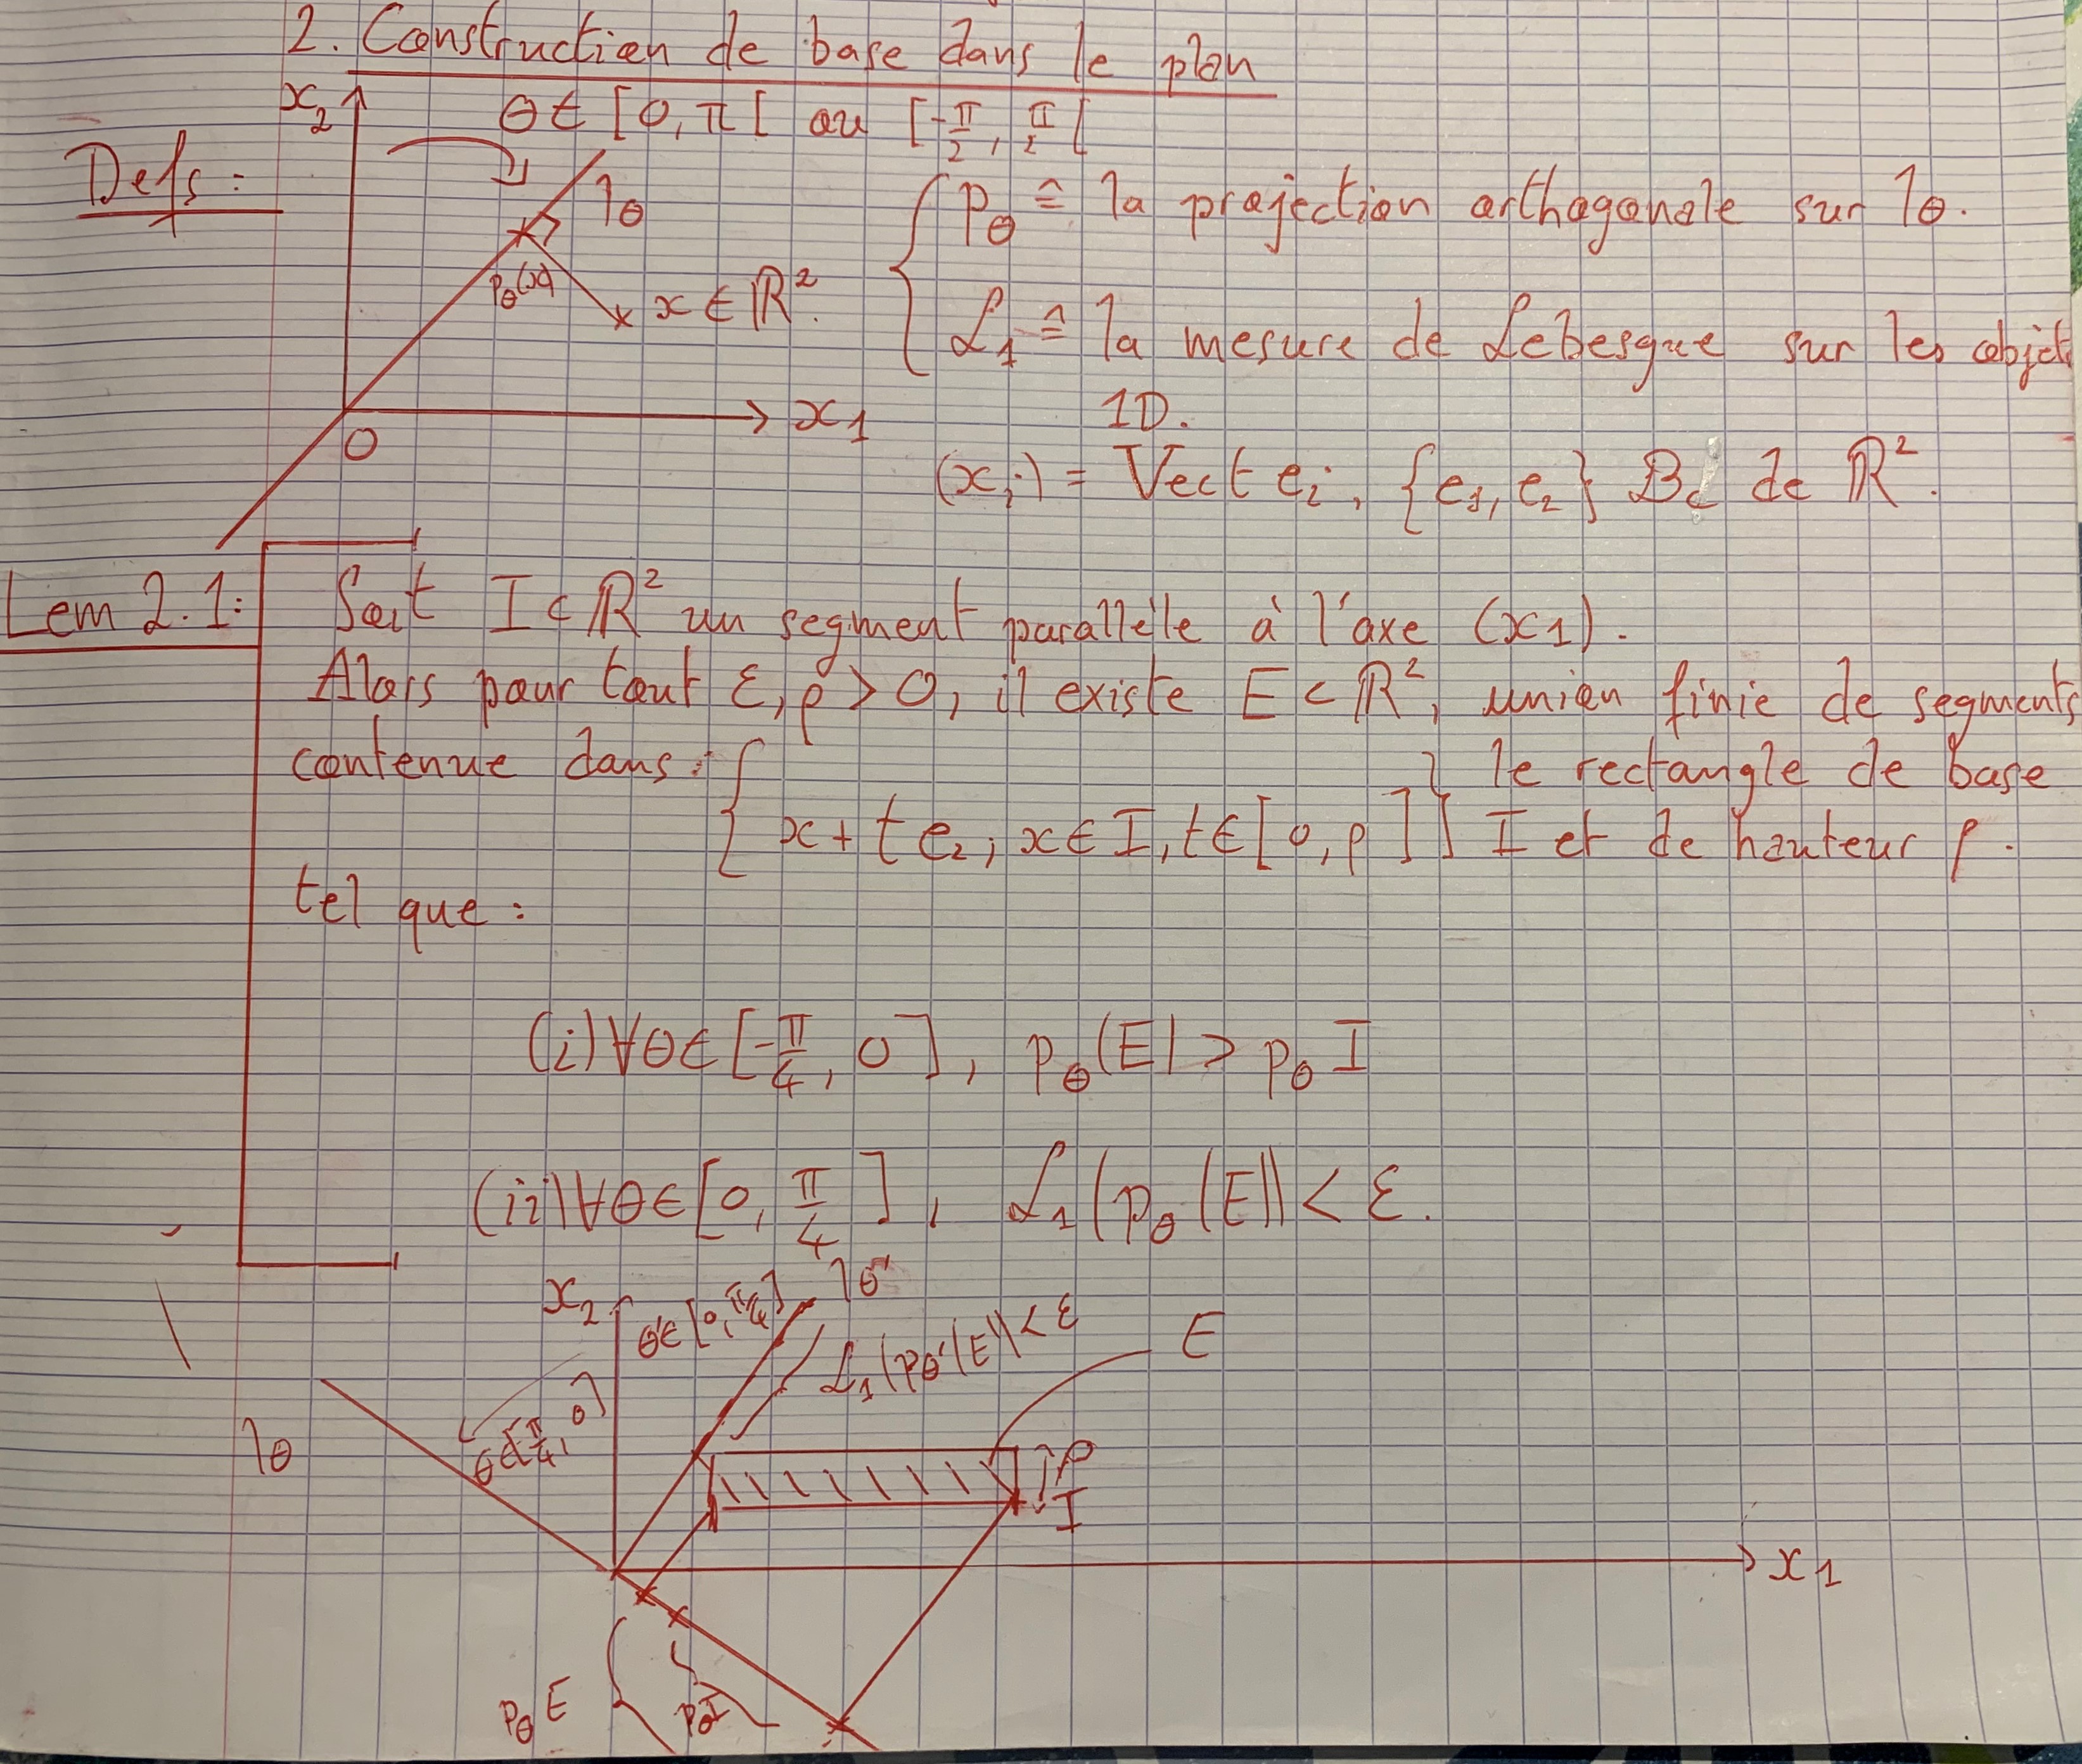 2. Construction de base dans le plan
x₂
θ ∈ [0, π[ ou [-π/2, π/2[
Defs :
lθ
pθ(x)
x ∈ ℝ².
O
x₁
{ pθ ≙ la projection orthogonale sur lθ.
ℒ₁ ≙ la mesure de Lebesgue sur les objets
1D.
(xᵢ) = Vect eᵢ, {e₁, e₂} Bc de ℝ².
Lem 2.1: Soit I ⊂ ℝ² un segment parallèle à l'axe (x₁).
Alors pour tout ε, ρ > 0, il existe E ⊂ ℝ², union finie de segments
contenue dans : { x + t e₂, x ∈ I, t ∈ [0, ρ] } le rectangle de base
I et de hauteur ρ.
tel que :
(i) ∀θ ∈ [-π/4, 0], pθ(E) ⊃ pθ I
(ii) ∀θ ∈ [0, π/4], ℒ₁(pθ(E)) < ε.
x₂
θ' ∈ [0, π/4]
lθ'
ℒ₁(pθ'(E)) < ε
E
lθ
θ ∈ [-π/4, 0]
ρ
I
x₁
pθ E
pθ I